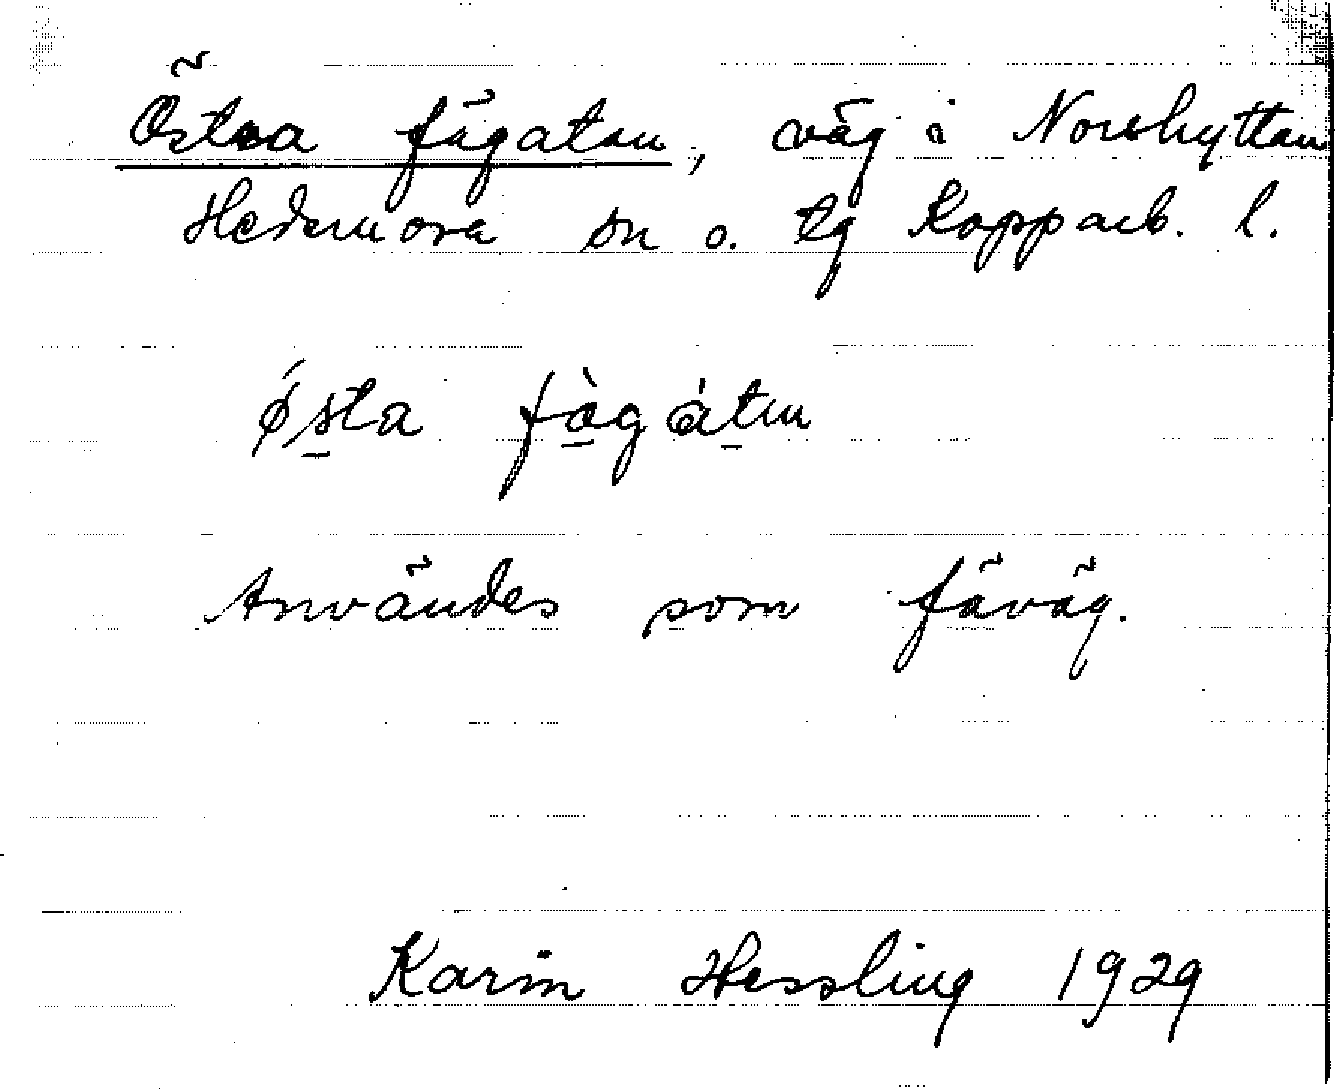 Östra fägatan, väg i Norshyttan
Hedemora sn o. tg Kopparb. l.
ǿsta fàgátṇ
Användes som fäväg.
Karin Hessling 1929